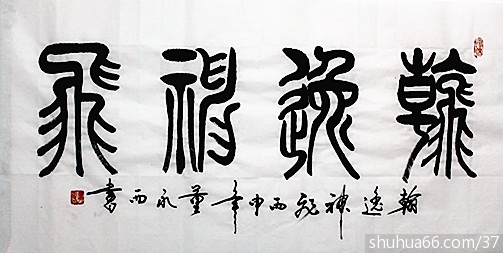 翰逸神飛
翰逸神飛丙申年董永西書
shuhua66.com/37